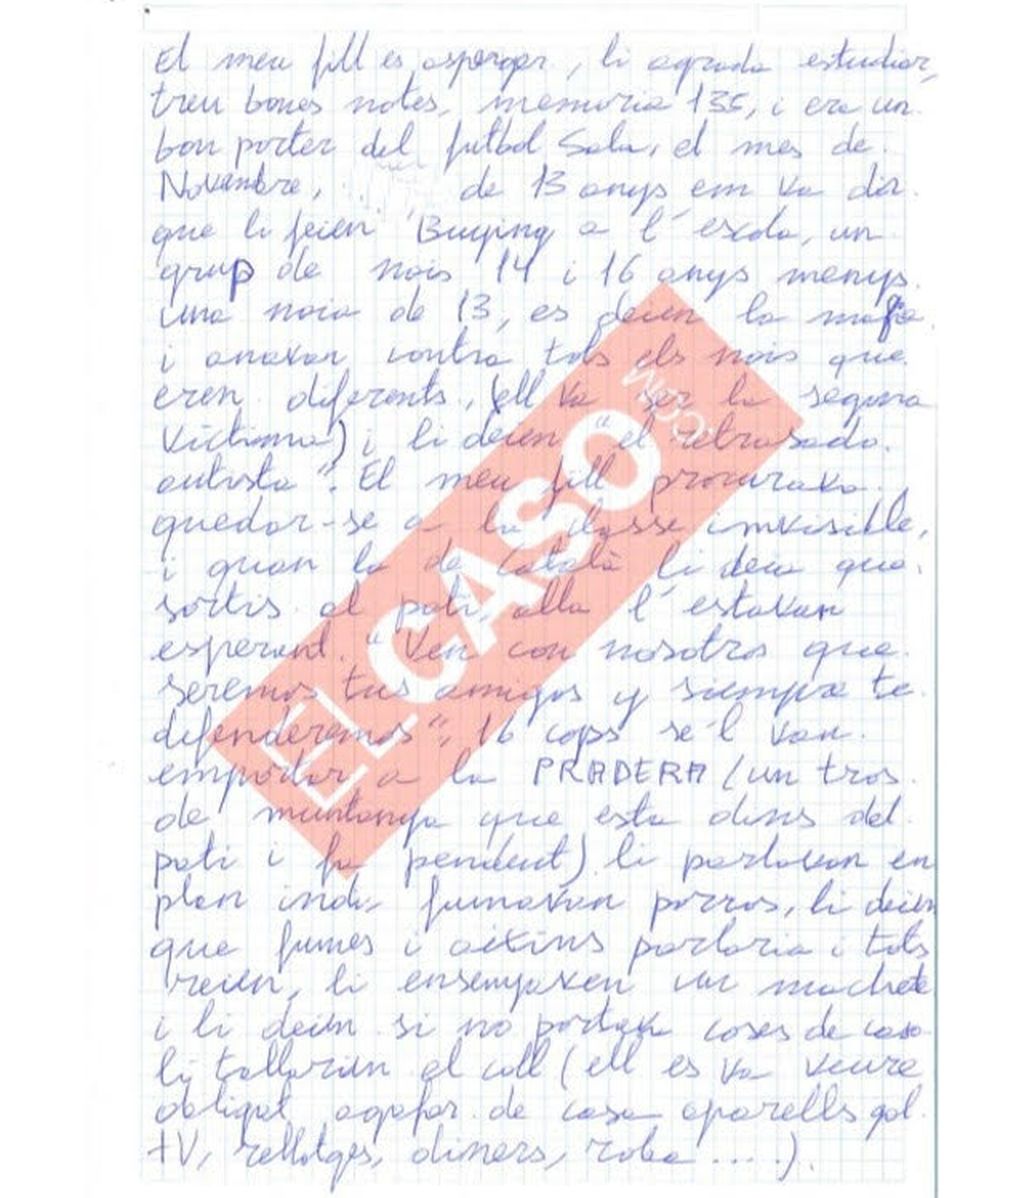 El meu fill es asperger, li agrada estudiar,
treu bones notes, memoria 135, i era un
bon porter del futbol Sala, el mes de
Novembre, de 13 anys em va dir
que li feien Buying a l'escola, un
grup de nois 14 i 16 anys menys
una noia de 13, es deien la mafia
i anavan contra tots els nois que
eren diferents, (ell va ser la segona
victima) i li deien "el retrasado
autista". El meu fill procurava
quedar-se a la classe invisible,
i quan la de Català li deia que
sortis al pati, alla l'estavan
esperant. "Ven con nosotros que
seremos tus amigos y siempre te
difenderemos", 16 cops se'l van
emportar a la PRADERA (un tros
de muntanya que esta dins del
pati i fa pendent) li parlavan en
plan indi, fumavan porros, li deien
que fumes i aixins parlaria i tots
reien, li ensenyaven un machete
i li deien si no portav coses de casa
li tallarian el coll (ell es va veure
obligat agafar de casa aparells gol
TV, rellotges, diners, roba ....).
EL CASO
.COM